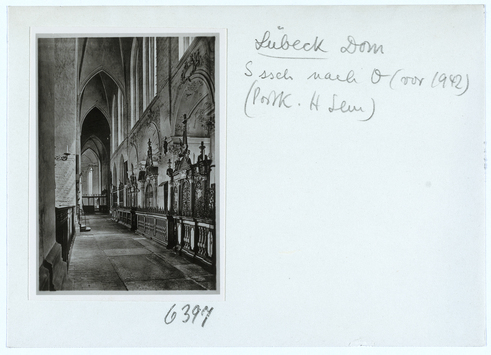 Lübeck Dom
S ssch nach O (vor 1942)
(Postk. H Sem)
6397